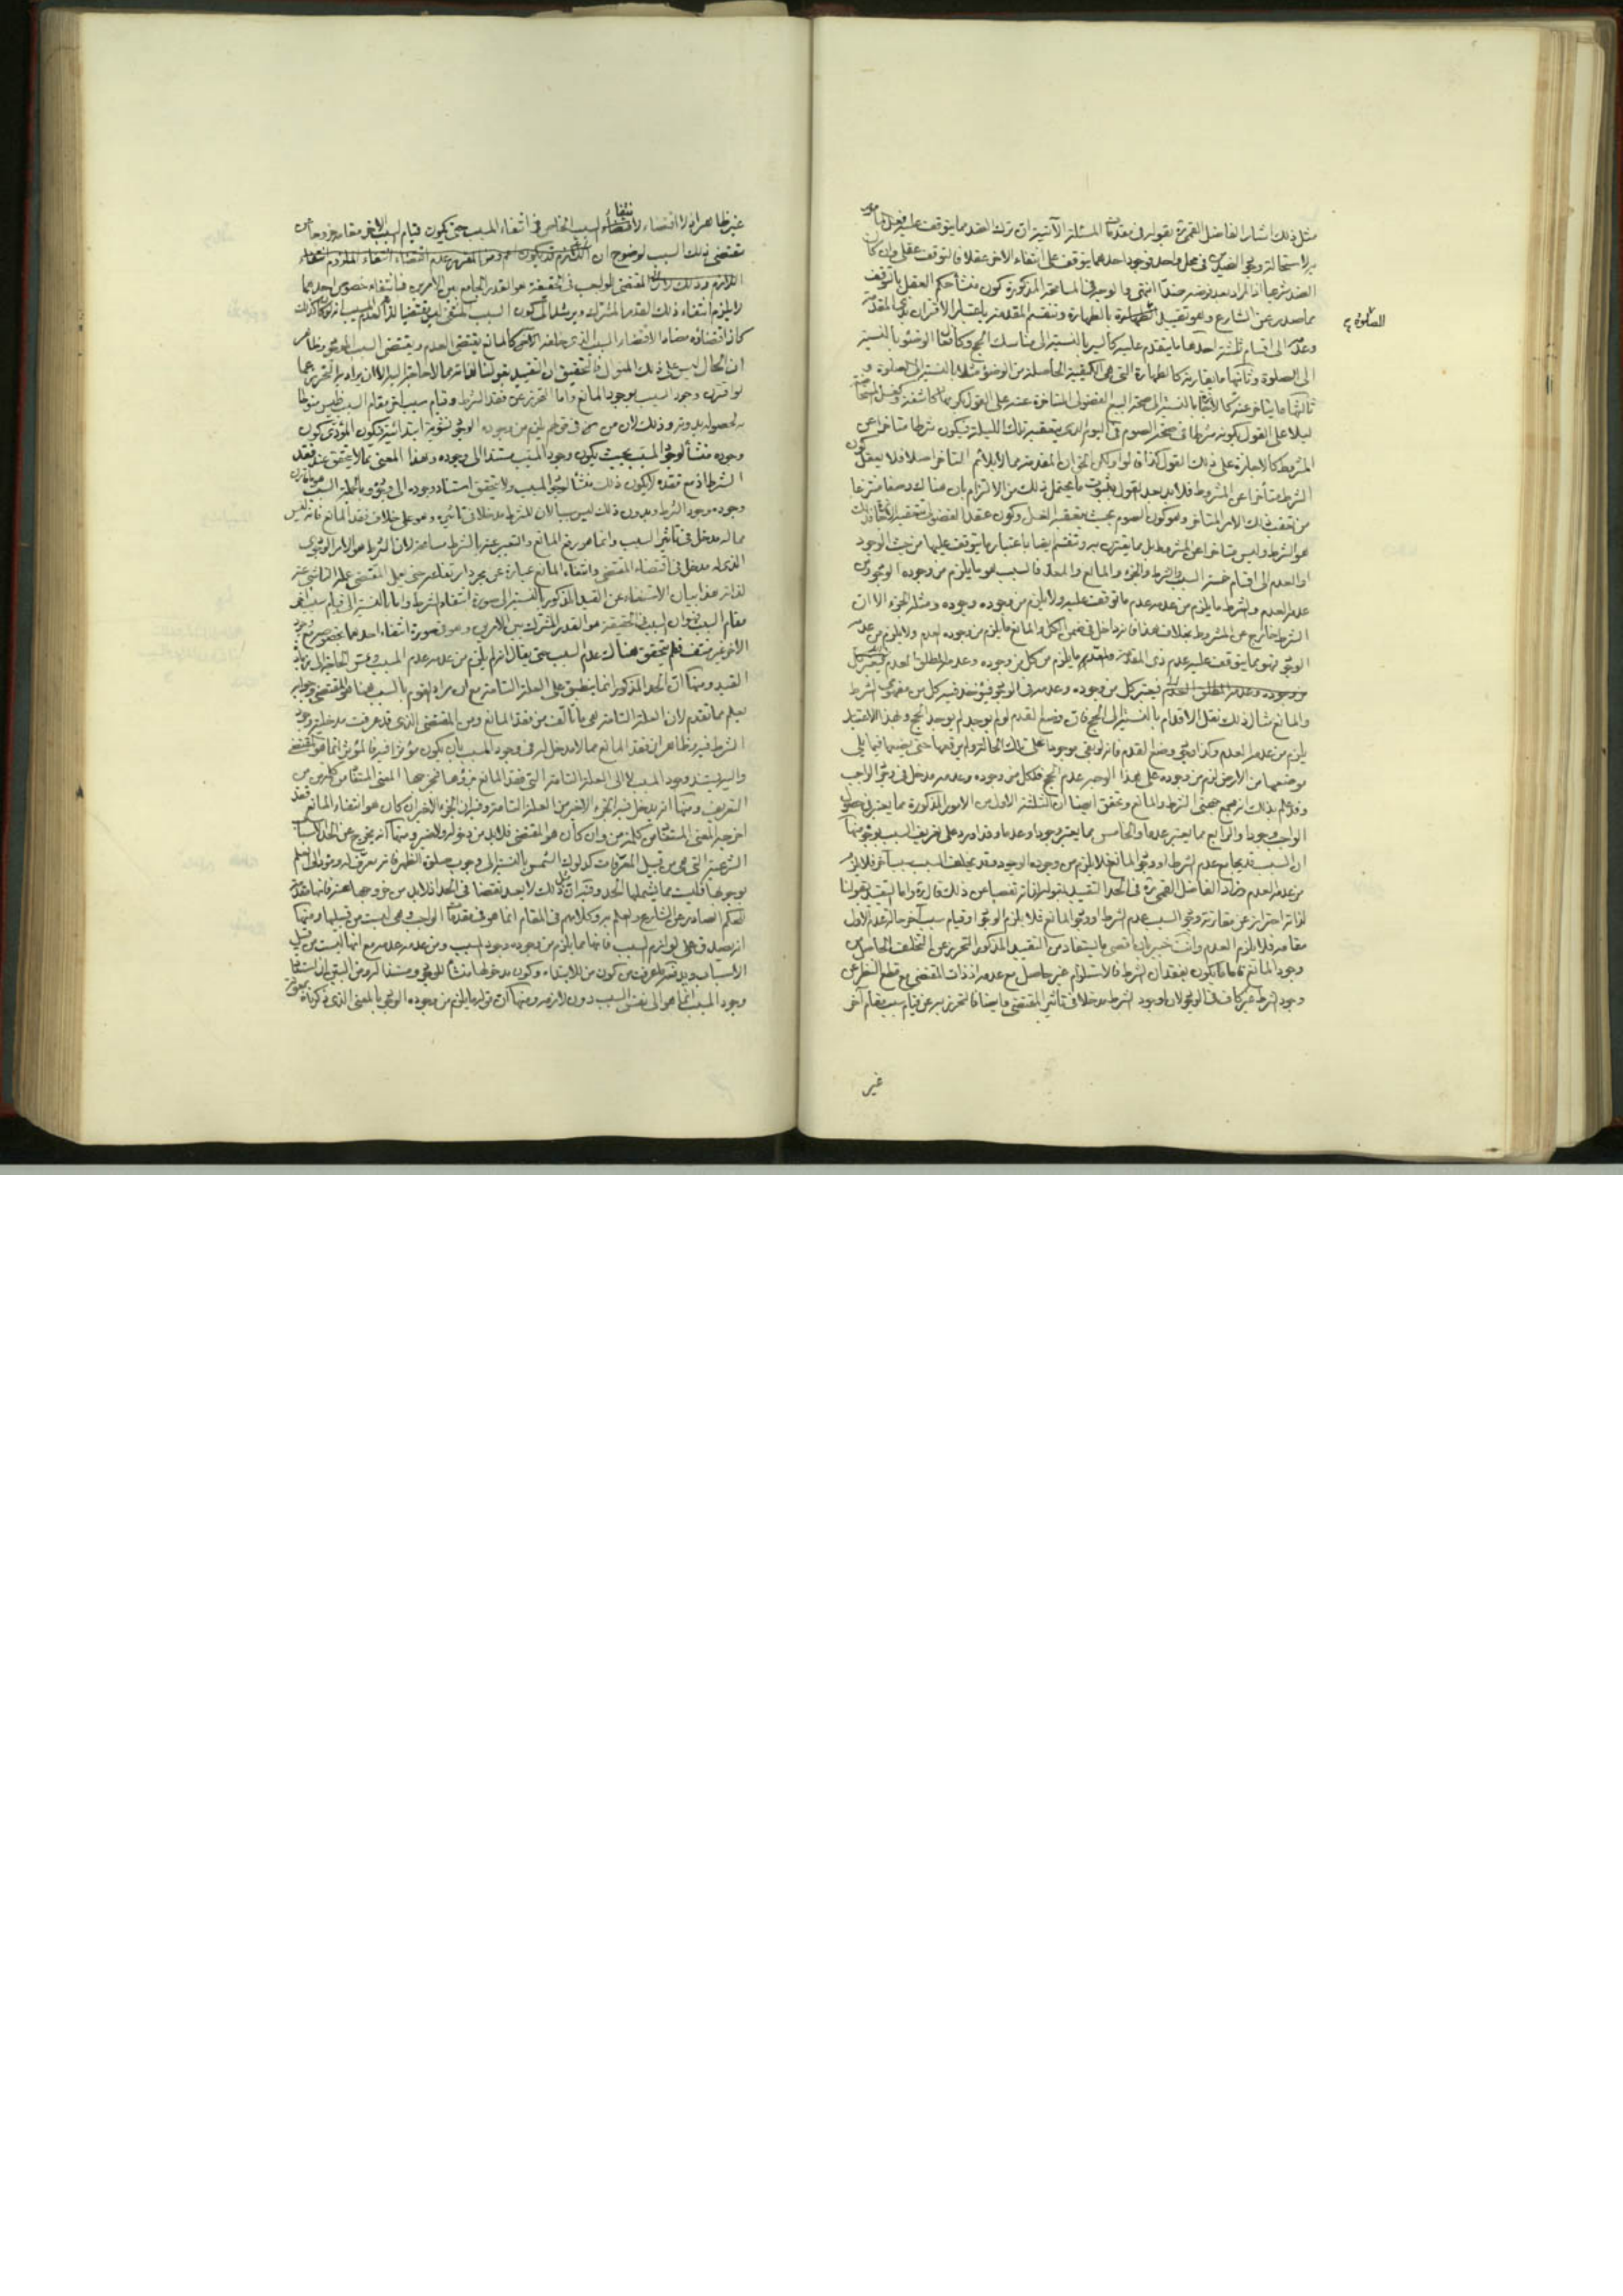 مثل ذلك اشار الفاضل القمي ره بقوله في مقدمات المسئلة الآتية ان ترك الضد مما يتوقف عليه فعل المأمور
به لاستحالة وجود الضدين في محل واحد فوجود احدهما يتوقف على انتفاء الاخر عقلا فالتوقف عقلي وان كان
الضد شرعيا اذ المراد بعد فرضه ضدا انتهى والوجه في المسامحة المذكورة كون منشأ حكم العقل بالتوقف
مما صدر عن الشارع وهو تقييد الصلوة بالطهارة وتنقسم المقدمة باعتبار الاقتران بذي المقدمة
الصلوة
وعدمه الى اقسام ثلثة احدها ما يتقدم عليه كالسير بالنسبة الى مناسك الحج وكافعال الوضوء بالنسبة
الى الصلوة وثانيها ما يقارنه كالطهارة التي هي الكيفية الحاصلة من الوضوء مثلا بالنسبة الى الصلوة و
ثالثها ما يتاخر عنه كالاجازة بالنسبة الى صحة البيع الفضولي المتاخرة عنه على القول بكونها كاشفة وكغسل المستحاضة
ليلا على القول بكونه شرطا في صحة الصوم في اليوم الذي يتعقبه تلك الليلة فيكون شرطا متاخرا عن
المشروط كالاجازة على ذلك القول كذا قالوا ولكن الحق ان المقدمة مما لا يلائم التاخر اصلا فلا يعقل كون
الشرط متأخرا عن المشروط فلا بد بعد القول بثبوت ما يحتمل ذلك من الالتزام بان هناك وصفا منتزعا
من تعقب ذلك الامر المتاخر وهو كون الصوم بحيث يتعقبه الغسل وكون عقد الفضولي متعقبه الاجازة وذلك
هو الشرط وليس متاخرا عن المشروط بل مما يقترن به وتنقسم ايضا باعتبار ما يتوقف عليها من حيث الوجود
او العدم الى اقسام خمسة السبب والشرط والجزء والمانع والمعد فالسبب هو ما يلزم من وجوده الوجود ومن
عدمه العدم والشرط ما يلزم من عدمه عدم ما توقف عليه ولا يلزم من وجوده وجوده ومثله الجزء الا ان
الشرط خارج عن المشروط بخلاف هذا فانه داخل في ضمن الكل والمانع ما يلزم من وجوده العدم ولا يلزم من عدمه
الوجود فهو مما يتوقف عليه عدم ذي المقدمة والمعد ما يلزم من كل من وجوده وعدمه المطلق العدم فيعتبر كل
من وجوده وعدمه في الوجود فيؤخذ فيه كل من مفهومي الشرط
والمانع مثال ذلك نقل الاقدام بالنسبة الى الحج فان وضع القدم لو لم يوجد لم يوجد الحج وبهذا الاعتبار
يلزم من عدمه العدم وكذا وجود وضع القدم فانه لو بقي بوجودها على تلك الحالة ولم يرفعها حتى يضعها فيما يلي
موضعها من الارض لزم من وجوده على هذا الوجه عدم الحج فلكل من وجوده وعدمه مدخل في وجود الواجب
وقد علم بذلك انه مجمع جهتي الشرط والمانع وتحقق ايضا ان الثلثة الاول من الامور المذكورة مما يعتبر في حصول
الواجب وجودا والرابع مما يعتبر عدما والخامس مما يعتبر وجودا وعدما وقد اورد على تعريف السبب بوجوه منها
ان السبب قد يجامع عدم الشرط او وجود المانع فلا يلزم من وجوده الوجود وقد يخلف السبب سبب آخر فلا يلزم
من عدمه العدم وزاد الفاضل القمي ره في الحد التقييد بقوله لذاته تفصيا عن ذلك قال ره واما التقييد بقولنا
لذاته احتراز عن مقارنة وجود السبب عدم الشرط او وجود المانع فلا يلزم الوجود او قيام سبب آخر حالة عدم الاول
مقامه فلا يلزم العدم وانت خبير بان اقصى ما يستفاد من التقييد المذكور التحرز عن التخلف الحاصل من
وجود المانع فاما ما يكون بفقدان الشرط فالاستلزام غير حاصل مع عدمه اذ ذات المقتضي مع قطع النظر عن
وجود الشرط غير كاف في الوجود لان لوجود الشرط مدخلا في تاثير المقتضي وايضا فالتحرز به عن قيام سبب مقام آخر
غير
غير ظاهر اذ لا اقتضاء لانتفاء السبب الخاص في انتفاء المسبب حتى يكون قيام السبب الاخر مقامه خروجا عن
مقتضى ذلك السبب لوضوح ان اللازم قد يكون اعم ومن المقرر عدم اقتضاء انتفاء الملزوم انتفاء
اللازم وذلك لان المقتضي للواجب في الحقيقة هو القدر الجامع بين الامرين فبانتفاء خصوص احدهما
لا يلزم انتفاء ذلك القدر المشترك ويرشد الى كون السبب المنتفي ليس مقتضيا لذاته لعدم المسبب انه لو كان كذلك
كان اقتضاؤه مضادا لاقتضاء السبب الذي خلفه اذ الاخر كالمانع يقتضي العدم ويقتضي السبب الوجود وظاهر
ان الحال ليس على ذلك المنوال فالتحقيق ان التقييد بقولنا لذاته مما لا حاجة اليه الا ان يراد به التحرز عما
لو اقترن وجود السبب بوجود المانع واما التحرز عن فقد الشرط وقيام سبب اخر مقام السبب فليس منوطا
به لحصوله بدونه وذلك لان من في قولهم يلزم من وجوده الوجود نشوية ابتدائية فيكون المؤدى كون
وجوده منشأ لوجود المسبب بحيث يكون وجود المسبب مستندا الى وجوده وهذا المعنى مما لا يتحقق عند فقد
الشرط اذ مع فقده لا يكون ذلك منشأ لوجود المسبب ولا يتحقق استناد وجوده الى وجوده وبالجملة السبب هو ما قارن
وجوده وجود الشرط وبدون ذلك ليس سببا لان للشرط مدخلا في تاثيره وهو على خلاف فقد المانع فانه ليس
مما له مدخل في تأثير السبب وانما هو رفع المانع والتعبير عنه بالشرط مسامحة لان الشرط هو الامر الوجودي
الذي له مدخل في اقتضاء المقتضي وانتفاء المانع عبارة عن مجرد ارتفاعه حتى يعمل المقتضي عمله الناشئ عنه
لذاته هذا بيان الاستغناء عن القيد المذكور بالنسبة الى صورة انتفاء الشرط واما بالنسبة الى قيام سبب اخر
مقام السبب فلان السبب في الحقيقة هو القدر المشترك بين الامرين وهو في صورة انتفاء احدهما بخصوصه مع وجود
الاخر غير منتف فلم يتحقق هناك عدم السبب حتى يقال انه لم يلزم من عدمه عدم المسبب ويمس الحاجة الى زيادة
القيد ومنها ان الحد المذكور انما ينطبق على العلة التامة مع ان مراد القوم بالسبب هنا هو المقتضي وجوابه
يعلم مما تقدم لان العلة التامة هي ما تألفت من فقد المانع ومن المقتضي الذي قد عرفت مدخلية وجود
الشرط فيه وظاهر ان فقد المانع مما لا مدخل له في وجود المسبب بان يكون مؤثرا فيه فالمؤثر انما هو المقتضي
واليه يستند وجود المسبب لا الى العلة التامة التي فقد المانع جزؤها فخرجها المعنى المستفاد من كلمة من
التعريف ومنها انه يدخل فيه الجزء الاخير من العلة التامة وفيه ان الجزء الاخير ان كان هو انتفاء المانع فقد
اخرجه المعنى المستفاد من كلمة من وان كان هو المقتضي فلا بد من دخوله ولا ضير ومنها انه يخرج عن الحد الاسباب
الشرعية التي هي من قبيل المعرفات كدلوك الشمس بالنسبة الى وجوب صلوة الظهر فانه معرف له ومؤد الى العلم
بوجوبها فليست مما يشملها الحد وفيه ان ذلك لا يعد نقضا في الحد اذ لا بد من خروجها عنه فانها مقدمة
للحكم الصادر عن الشارع والعلم به وكلامهم في المقام انما هو في مقدمات الواجب وهي ليست من قبيلها ومنها
انه يصدق على لوازم السبب فانها مما يلزم من وجوده وجود المسبب ومن عدمه عدمه مع انها ليست من قبيل
الاسباب ويدفعه ما عرفت من كون من للابتداء وكون مدخولها منشأ للوجود ومستندا له ومن البين ان استناد
وجود المسبب انما هو الى نفس السبب دون لازمه ومنها ان قوله ما يلزم من وجوده الوجود بالمعنى الذي ذكرناه